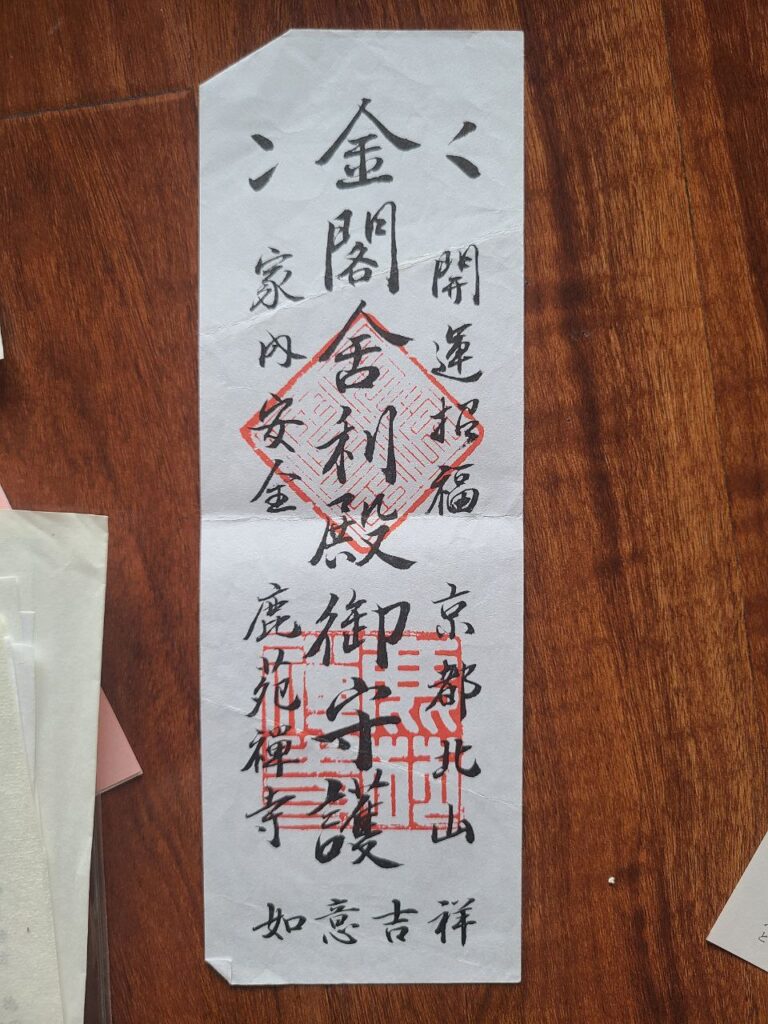 開運招福
京都北山
金閣舍利殿御守護
家内安全
鹿苑禪寺
如意吉祥